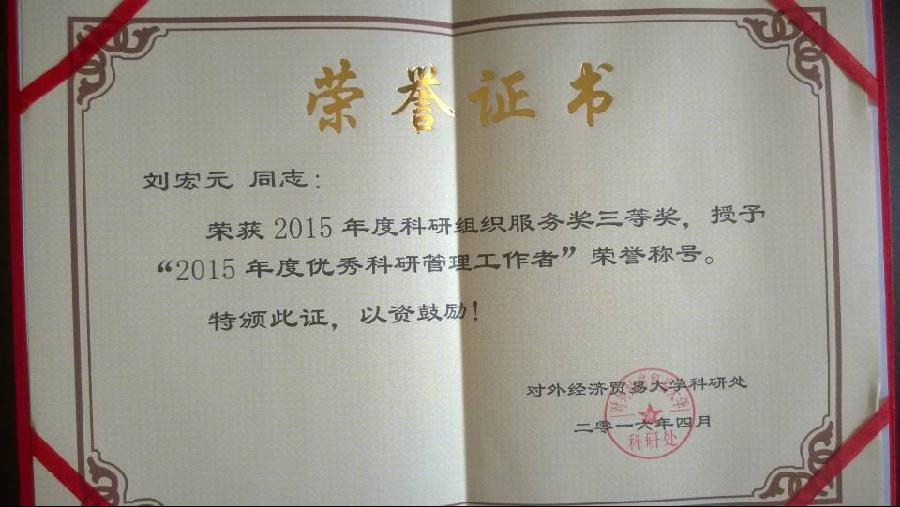 荣誉证书
刘宏元 同志：
荣获 2015 年度科研组织服务奖三等奖，授予
“2015 年度优秀科研管理工作者”荣誉称号。
特颁此证，以资鼓励！
对外经济贸易大学科研处
二零一六年四月
对外经济贸易大学
科研处